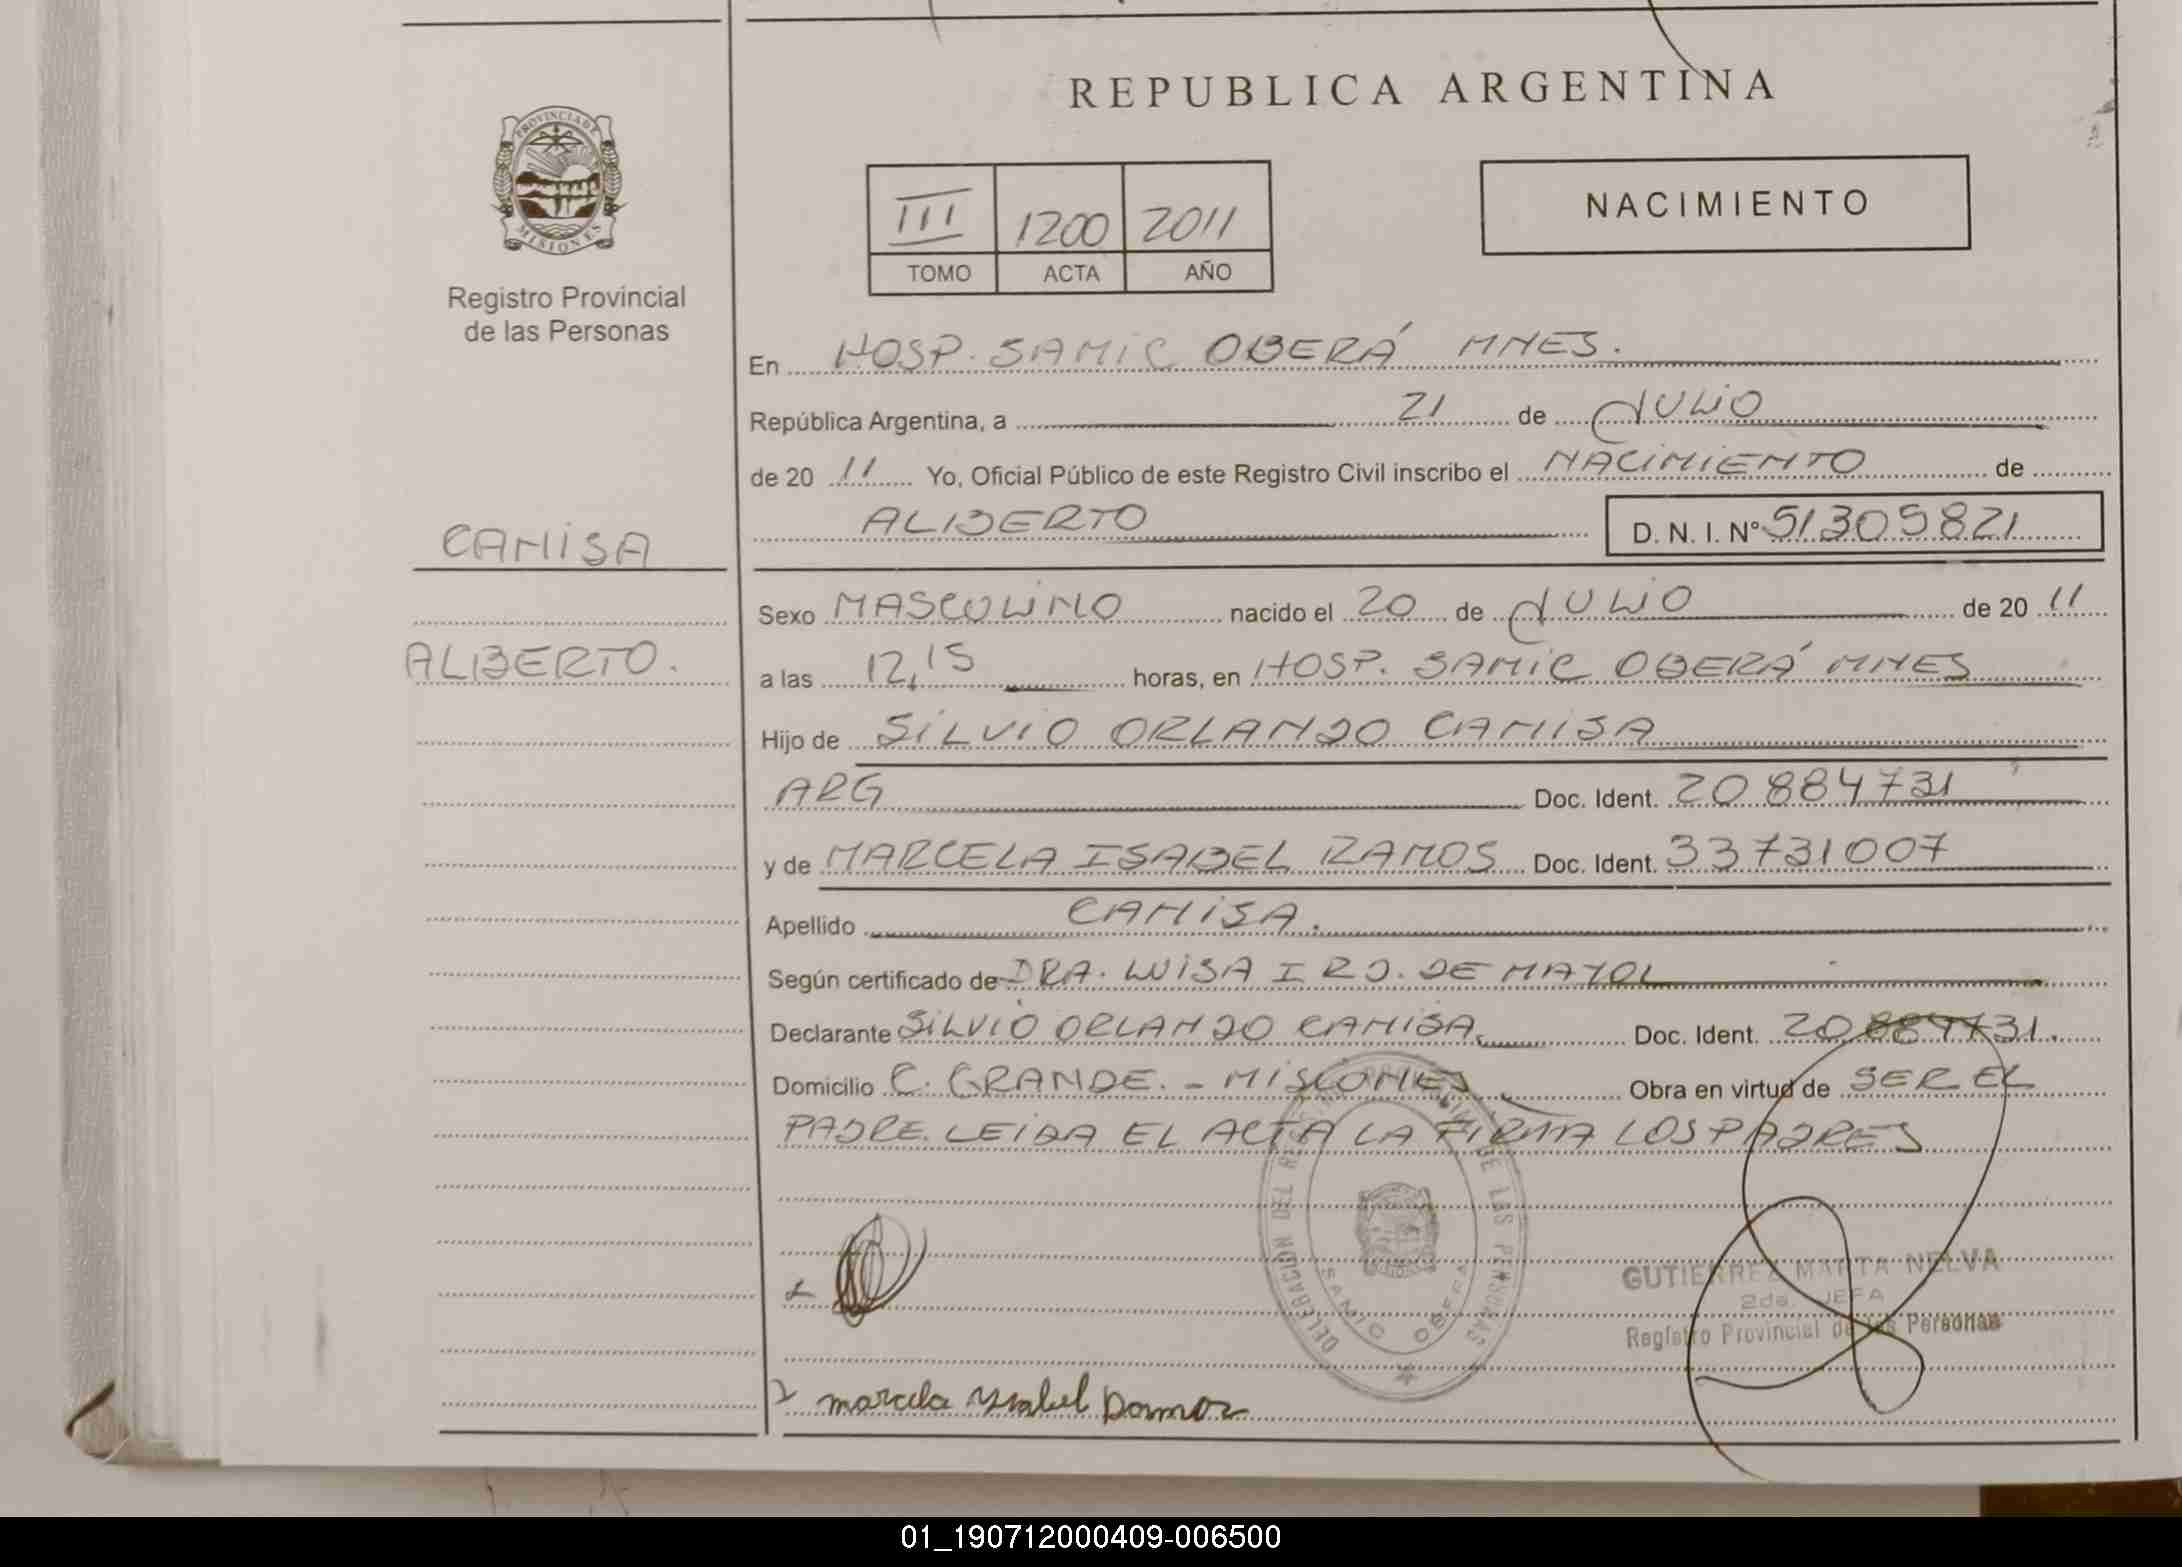 REPUBLICA ARGENTINA
PROVINCIA DE
MISIONES
Registro Provincial
de las Personas
III 1200 2011
TOMO ACTA AÑO
NACIMIENTO
En HOSP. SAMIC OBERÁ MNES.
República Argentina, a 21 de JULIO
de 20 11 Yo, Oficial Público de este Registro Civil inscribo el NACIMIENTO de
ALBERTO D. N. I. Nº 51305821
CAMISA
ALBERTO.
Sexo MASCULINO nacido el 20 de JULIO de 20 11
a las 12,15 horas, en HOSP. SAMIC OBERÁ MNES
Hijo de SILVIO ORLANDO CAMISA
ARG Doc. Ident. 20884731
y de MARCELA ISABEL RAMOS Doc. Ident. 33731007
Apellido CAMISA.
Según certificado de DRA. LUISA I DE MAYOL
Declarante SILVIO ORLANDO CAMISA Doc. Ident. 20884731.
Domicilio C. GRANDE. - MISIONES Obra en virtud de SER EL
PADRE. LEIDA EL ACTA LA FIRMA LOS PADRES
DELEGACION DEL REGISTRO PROVINCIAL DE LAS PERSONAS
SAMIC OBERA
GUTIERREZ MARTA NELVA
2da. JEFA
Registro Provincial de las Personas
marcela Ysabel Ramos
01_190712000409-006500